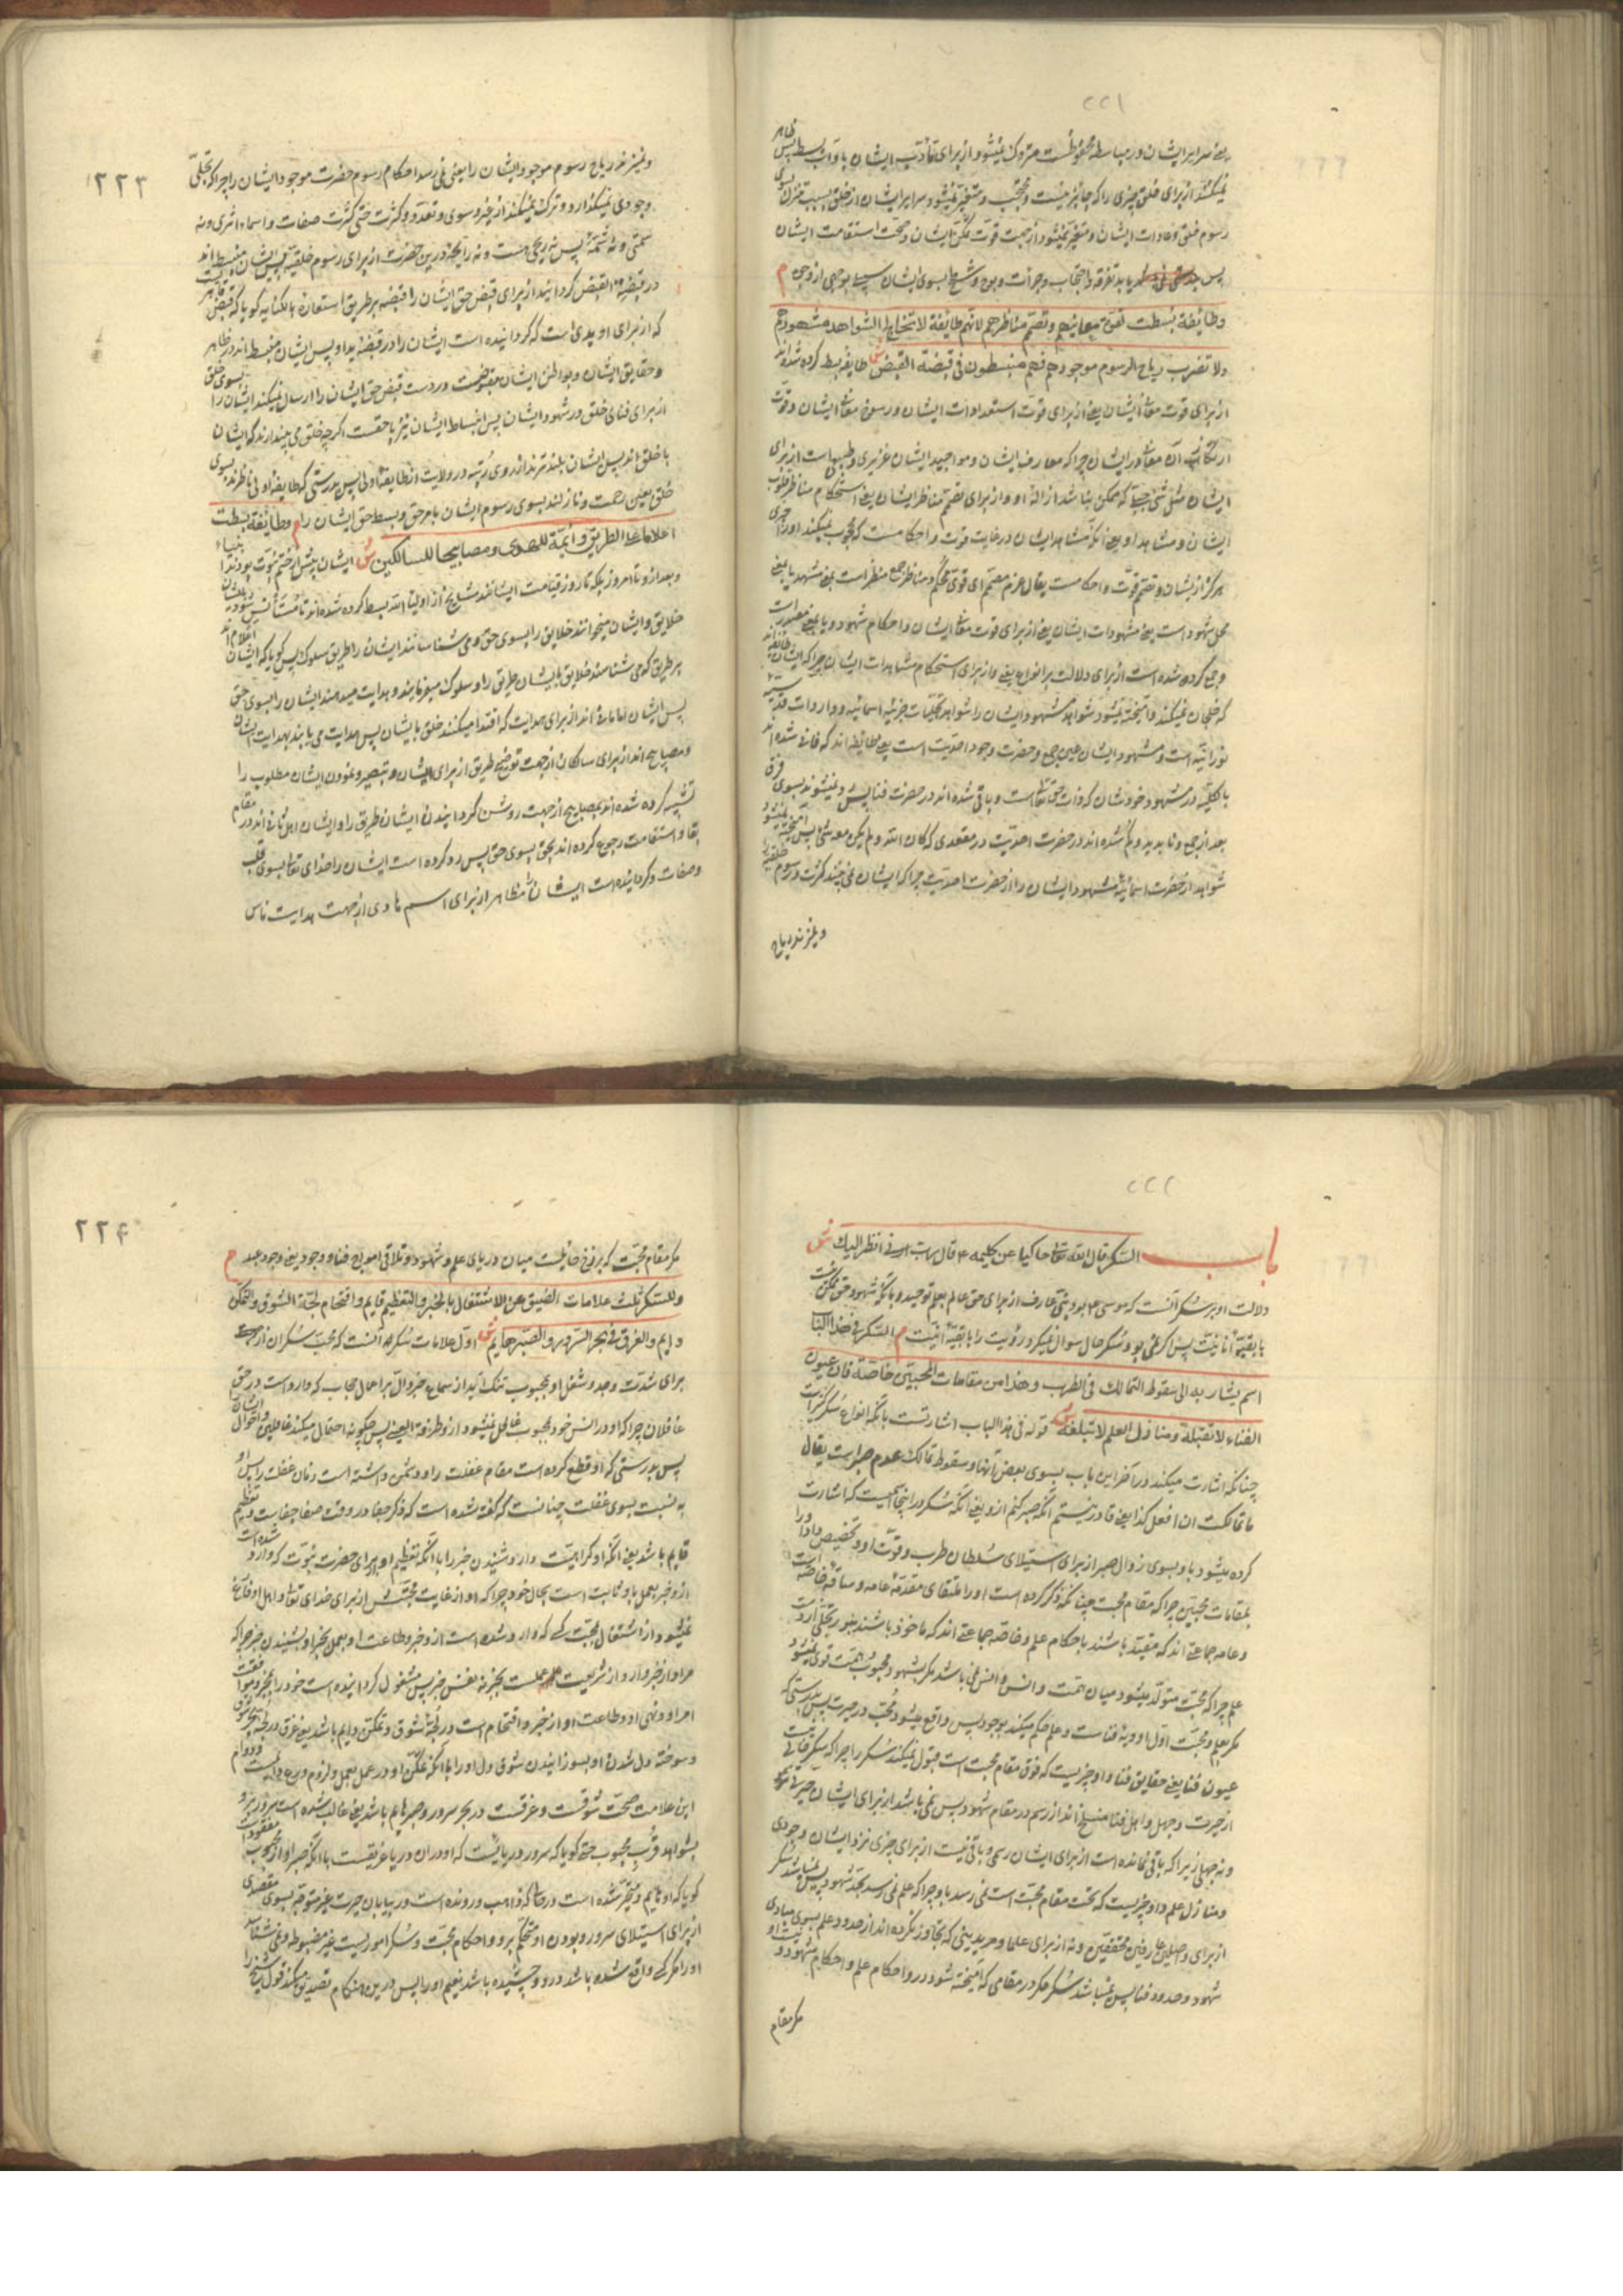 ٢٢١
یعنی سرایر ایشان در مباسطه محفوظست متروک نمیشود از برای تأدیب ایشان بآداب بسط پس ظاهر
نمیکند از برای خلق چیزی را که جایز نیست و محتجب و متغیر نمیشود سرایر ایشان از خلق بسبب تنزل بسوی
رسوم خلق و عادات ایشان و متغیر نمیشود از جهت قوت تمکن ایشان و صحت استقامت ایشان
پس یابد تفرقه و احتجاب و جرأت و بوح و شطح بسوی ایشان سبیلا بوجهی از وجوه م
وطائفة بسطت لقوة معانيهم وتصمم مناظرهم لانهم طائفة لا تخالج الشواهد مشهودهم
ولا تضرب رياح الرسوم موجودهم فهم منبسطون في قبضة القبض ش طایفه بسط کرده شده‌اند
از برای قوت معانی ایشان یعنی از برای قوت استعدادات ایشان و رسوخ معانی ایشان و قوت
ارتکاز آن معانی در ایشان چرا که معارف ایشان و مواجید ایشان غریزی و طبیعی است از برای
ایشان مثل شئ جبلی که ممکن نباشد ازالهٔ او و از برای تصمم مناظر ایشان یعنی استحکام مناظر قلوب
ایشان و مشاهد او یعنی آنکه مشاهد ایشان در غایت قوت و احکامست که محجوب نمیکند او را چیزی
هرگز از ایشان و تصمم قوت و احکامست یقال عزم مصمم ای قوی محکم و مناظر جمع منظر است بمعنی مشهد یا بمعنی
محل شهود است یعنی مشهودات ایشان یعنی از برای قوت معانی ایشان و احکام شهود و یا بمعنی مصدر است
و جمع کرده شده است از برای دلالت بر انواع یعنی و از برای استحکام مشاهدات ایشان چرا که ایشان طائفه‌اند
که خلجان نمیکند و آمیخته نمیشود شواهد مشهود ایشان را شواهد تجلیات جزئیه اسمائیه و واردات قدسیه
نورانیه است و مشهود ایشان عین جمع و حضرت وجود احدیت است یعنی طائفه‌اند که فانی شده‌اند
بالکلیه در مشهود خودشان که ذات حق تعالی است و باقی شده‌اند در حضرت فنا پس رد نمیشوند بسوی فرق
بعد از جمع و ناپدید و گم شده‌اند در حضرت احدیت در مقعدی که کان الله و لم یکن معه شئ پس آمیخته نمیشود
شواهد از حضرت اسمائیه مشهود ایشان را از حضرت احدیت چرا که ایشان نمی‌بینند کثرت و رسوم خلقیه را
و نمیزند ریاح
٢٢٣
و نمیزند ریاح رسوم موجود ایشان را یعنی نمی‌رسد احکام رسوم حضرت موجود ایشان را چرا که تجلی
وجودی نمیگذارد و ترک نمیکند از چیز و سوی و تعدد و کثرت حتی کثرت صفات و اسماء اثری و نه
سمتی و نه شمه پس نه ریحی هست و نه رایحه در این حضرت از برای رسوم خلقیه پس ایشان منبسط‌اند
در قبضه القبض گردانید از برای قبض حق ایشان را قبضه بر طریق استعاره بالکنایه گویا که قبض
که از برای او یدی است که گردانیده است ایشان را در قبضهٔ ید او پس ایشان منبسط‌اند در ظاهر
و حقایق ایشان و بواطن ایشان مقبوضست در دست قبض حق ایشان را ارسال نمیکند ایشان را بسوی خلق
از برای فنای خلق در شهود ایشان پس انبساط ایشان نیز با حقست اگر چه خلق می‌پندارند که ایشان
با خلق‌اند پس ایشان بلندترند از روی رتبه در ولایت از طایفهٔ اولی پس بدرستی که طایفهٔ اولی ناظرند بسوی
خلق بعین رحمت و نازلند بسوی رسوم ایشان بامر حق و بسط حق ایشان را م وطائفة بسطت
اعلاما على الطريق وأئمة للهدى ومصابيحا للسالكين ش ایشان پیش از ختم نبوت بودند انبیاء
و بعد از او تا امروز بلکه تا روز قیامت ایشانند مشایخ از اولیاء الله بسط کرده شده‌اند
خلایق و ایشان میخوانند خلایق را بسوی حق و می‌شناسانند ایشان را طریق سلوک پس گویا که ایشان اعلام‌اند
بر طریق که می‌شناسند خلایق بایشان طریق را و سلوک مینمایند و هدایت میدهند ایشان را بسوی حق
پس ایشان امامان‌اند از برای هدایت که اقتدا میکنند خلق بایشان پس هدایت می‌یابند بهدایت ایشان
و مصابیح‌اند از برای سالکان از جهت توضیح طریق از برای ایشان و تبصیر و نمودن ایشان مطلوب را
تشبیه کرده شده‌اند بمصابیح از جهت روشن گردانیدن ایشان طریق را و ایشان اهل ثانی‌اند در مقام
بقا و استقامت رجوع کرده‌اند بحق بسوی حق پس رد کرده است ایشان را خدای تعالی بسوی قلب
و صفات و گردانیده است ایشان را مظاهر از برای اسم هادی از جهت هدایت ناس
٢٢٢
باب السكر قال الله تعالى حاكيا عن كليمه ع قال رب ارني انظر اليك ش
دلالت او بر سکر آنست که موسی ع بود نبی عارف از برای حق عالم بعلم توحید و بآنکه شهود حق ممکن نیست
با بقیهٔ انانیت پس اگر نمی‌بود سکر حال سوال نمیکرد رؤیت را با بقیهٔ انیت م السكر في هذا الباب
اسم يشار به الى سقوط التمالك في الطرب وهذا من مقامات المحبين خاصة فان عيون
الفناء لا تقبله ومنازل العلم لا تبلغه ش قوله فی هذا الباب اشارتست بآنکه انواع سکر کثیر است
چنانکه اشارت میکند در آخر این باب بسوی بعض آنها و سقوط تمالک عدم صبر است یقال
ما تمالکت ان افعل کذا یعنی قادر نیستم آنکه صبر کنم از او یعنی آنکه سکر در اینجا اسمیست که اشارت
کرده میشود باو بسوی زوال صبر از برای استیلای سلطان طرب و قوت او و تخصیص داد او را
بمقامات محبین چرا که مقام محبت چنانکه ذکر کرده است او را ملتقای مقدمهٔ عامه و ساقهٔ خاصه است
و عامه جماعتی‌اند که مقید باشند باحکام علم و خاصه جماعتی‌اند که ماخوذ باشند بنور تجلی از ورای
علم چرا که محبت متولد میشود میان همت و انس و انس نمی‌باشد مگر بشهود محبوب و همت قوی نمیشود
مگر بعلم و محبت اول اودیه فناست و علم حکم میکند بوجود پس واقع میشود محب در حیرت پس بدرستی که
عیون فنا یعنی حقایق فنا و او چیزیست که فوق مقام محبت است قبول نمیکند سکر را چرا که سکر خالی نیست
از حیرت و جهل و اهل فنا منسلخ‌اند از رسم در مقام شهود پس نمی‌باشد از برای ایشان حیرتی
و نه جهلی زیرا که باقی نمانده است از برای ایشان رسمی و باقی نیست از برای چیزی نزد ایشان وجودی
و منازل علم و او چیزیست که تحت مقام محبت است نمی‌رسد باو چرا که علم نمی‌رسد بحد شهود پس نمیباشد سکر
از برای واصلین عارفین محققین و نه از برای علما و مریدینی که تجاوز نکرده‌اند از حدود علم بسوی مبادی
شهود و حدود فنا پس نمیباشد سکر مگر در مقامی که آمیخته شود در او احکام علم و احکام شهود و
مگر مقام
٢٢۴
مگر مقام محبت که برزخ حایلست میان دریای علم و شهود و تلاقی امواج فنا و وجود یعنی وجود عبد م
وللسكر ثلث علامات الضيق عن الاشتغال بالخبر والتعظيم قايم واقتحام لجة الشوق والتمكن
دايم والغرق في بحر السرور والصبر هايم ش اول علامات سکر آنست که محب سکران از جهت
برای شدت وجد و شغل او بمحبوب تنگ آید از سماع خبر دال بر اعمال حجاب که وارد است در حق
غافلان چرا که او در انس خود بمحبوب غافل نمیشود از او طرفة العین پس چگونه احتمال میکند غافلین و احوال ایشان
پس بدرستی که او قطع کرده است مقام غفلت را و دشمن داشته است زمان غفلت را
به نسبت بسوی غفلت چنانست که گفته شده است که ذکر جفا در وقت صفا جفاست و تعظیم
قایم باشد یعنی آنکه او کراهیت دارد شنیدن خبر را با آنکه تعظیم او برای حضرت نبوت که وارد شده است
از او خبر بعمل باو ثابت است بحال خود چرا که او از غایت محبتش از برای خدای تعالی و اهل او فارغ
نمیشود از اشتغال بمحبت که وارد شده است از او خبر و طاعت او بعمل بخبر او بشنیدن خبر چرا که
مراد از خبر وارد از شریعت عملست بخبر نه نفس خبر پس مشغول گردانیده است خود را بخبر و موافقت
امر او و نهی او و طاعت او از خبر و اقتحام است در لجهٔ شوق و تمکن دایم باشد یعنی غرق در لجهٔ بحر شوق
و سوخته دل شدن او بسوزانیدن شوق دل او را با آنکه تمکن او در عمل بعمل و لزوم ورع دایمست و دوام
این علامت صحت شوقست و غرقست در بحر سرور و صبر هایم باشد یعنی غالب شده است سرور بر او
بشواهد قرب محبوب حتی گویا که سرور دریائیست که او در آن دریا غرقست با آنکه صبر او از محبوب مفقود است
گویا که او هایم و متحیر شده است در فنا که ذاهب و رونده است در بیابان حیرت غیر متوجه بسوی مقصدی
از برای استیلای سرور و بودن او متحکم بر او و احکام محبت و سکر اموریست غیر مضبوطه و نمی‌شناسد
او را مگر کسی که واقع شده باشد در او و چشیده باشد نعیم او را پس در این هنگام تصدیق میکند قول شیخ را